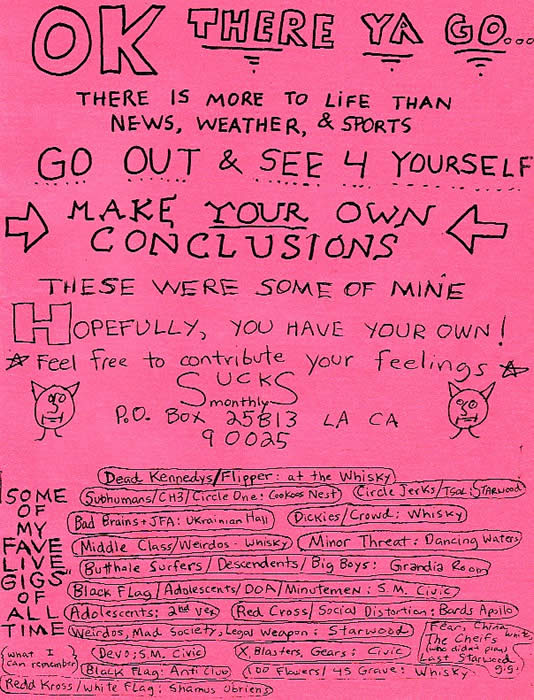 OK THERE YA GO...
THERE IS MORE TO LIFE THAN
NEWS, WEATHER, & SPORTS
GO OUT & SEE 4 YOURSELF
MAKE YOUR OWN
CONCLUSIONS
THESE WERE SOME OF MINE
HOPEFULLY, YOU HAVE YOUR OWN!
Feel free to contribute your feelings
SUCKS
monthly
P.O. BOX 25813 LA CA
90025
SOME
OF
MY
FAVE
LIVE
GIGS
OF
ALL
TIME
(what I
can remember)
Dead Kennedys/Flipper: at the Whisky
Subhumans/CH3/Circle One: Cookoos Nest
Circle Jerks/TSOL: STARWOOD
Bad Brains + JFA: UKrainian Hall
Dickies/Crowd: Whisky
Middle Class/Weirdos - Whisky
Minor Threat: Dancing Waters
Butthole Surfers/Descendents/Big Boys: Grandia Room
Black Flag/Adolescents/DOA/Minutemen: S.M. Civic
Adolescents: 2nd Vex
Red Cross/Social Distortion: Bards Apollo
Weirdos, Mad Society, Legal Weapon: Starwood
Fear, China White
The Cheifs
(who didn't play)
Last Starwood
gig.
Devo; S.M. Civic
X, Blasters, Gears: Civic
Black Flag: Anti Club
100 Flowers/45 Grave: Whisky
Redd Kross/White Flag: Shamus Obriens